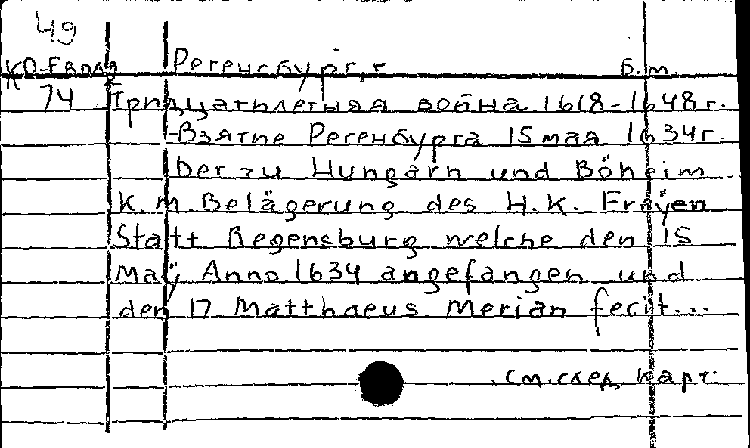 49
КО-Европ Регенсбург, г. б.м.
74 Тридцатилетняя война 1618-1648 г.
-Взятие Регенбурга 15 мая 1634 г.
Der zu Hungarn und Böheim
K. M. Belägerung des H.K. Freyen
Statt Regensburg welche den 15
Maÿ Anno 1634 angefangen und
den 17 Matthaeus Merian fecit...
см. след. карт.